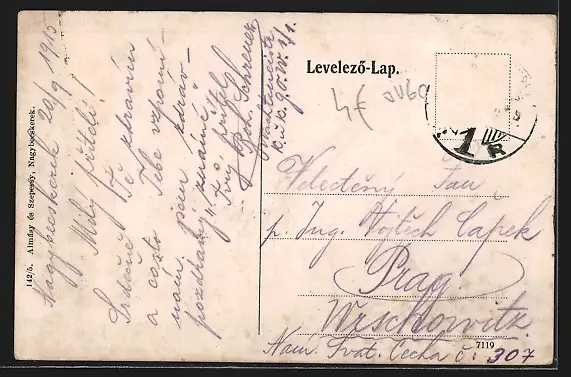 Levelező-Lap.
142/5. Almásy és Szepessy, Nagybecskerek.
Nagybecskerek 20/9 1915
Milý příteli!
Srdečně Tě zdravím
a často Tebe vzpomí-
nám. Jsem zdráv -
pozdravuj známé
Tvůj přítel
Boh. Schreiner
4€
Velectěný Pan
p. Ing. Vojtěch Čapek
Prag
Wrschowitz
Nám. Svat. Čecha č. 307
7119
1
R